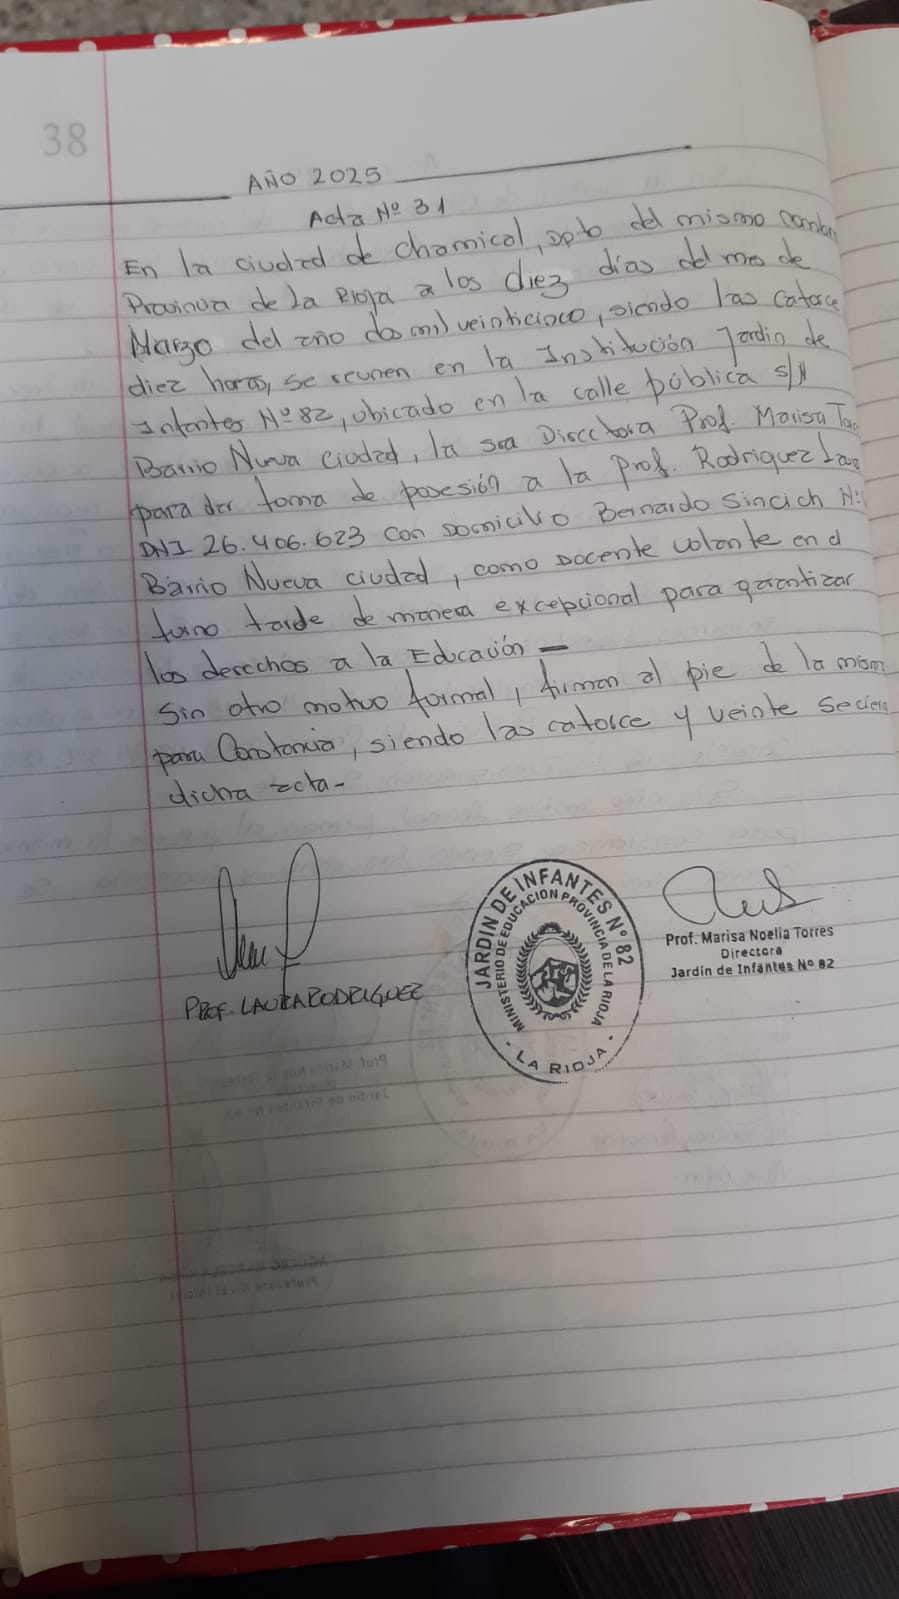 38
AÑO 2025
Acta Nº 31
En la ciudad de Chamical, Dpto del mismo nombre
Provincia de La Rioja a los diez días del mes de
Marzo del año dos mil veinticinco, siendo las catorce
diez horas, se reunen en la Institución Jardin de
Infantes Nº 82, ubicado en la calle pública s/N
Barrio Nueva Ciudad, la sra Directora Prof. Marisa
para dar toma de posesión a la Prof. Rodriguez
DNI 26.406.623 con Domicilio Bernardo Sincich Nº
Barrio Nueva Ciudad, como Docente volante en el
turno tarde de manera excepcional para garantizar
los derechos a la Educación —
Sin otro motivo formal, firman al pie de la mism
para Constancia, siendo las catorce y veinte se cierra
dicha acta-
PROF. LAURA RODRIGUEZ
JARDIN DE INFANTES Nº 82
MINISTERIO DE EDUCACION PROVINCIA DE LA RIOJA
- LA RIOJA -
Prof. Marisa Noelia Torres
Directora
Jardín de Infantes Nº 82